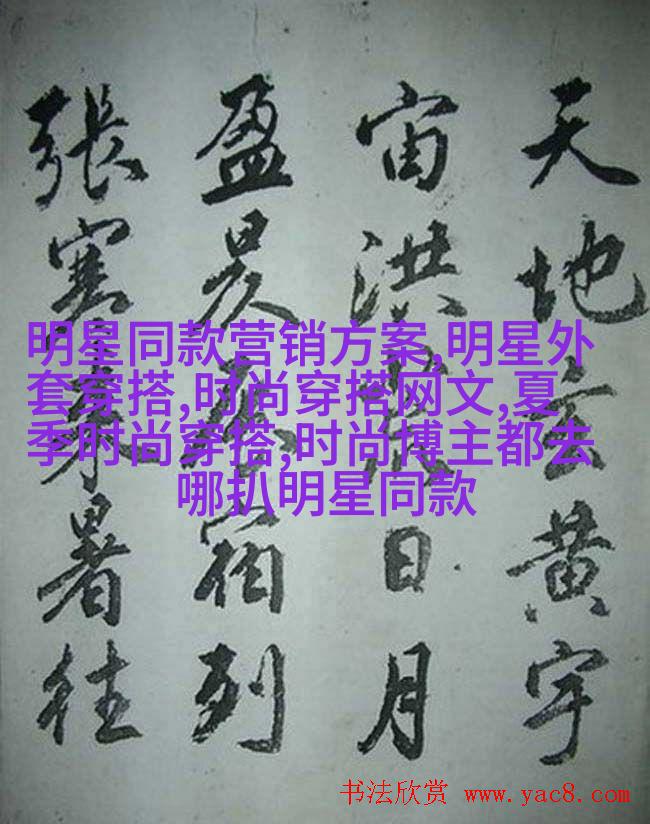 天地玄黄宇
宙洪荒日月
盈昃辰宿列
張寒來暑往
明星同款营销方案,明星外
套穿搭,时尚穿搭网文,夏
季时尚穿搭,时尚博主都去
哪扒明星同款
书法欣赏 www.yac8.com